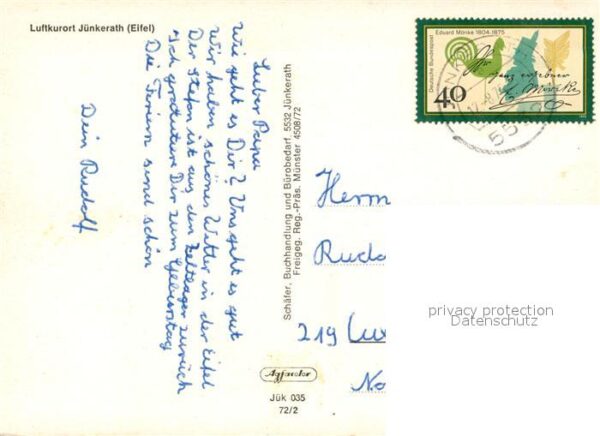 Luftkurort Jünkerath (Eifel)
Lieber Papa
Wie geht es Dir? Uns geht es gut
Wir haben schönes Wetter in der Eifel.
Der Stefan ist aus dem Zeltlager zurück
Ich gratuliere Dir zum Geburtstag
Die Ferien sind schön
Dein Rudolf
Schäfer, Buchhandlung und Bürobedarf, 5532 Jünkerath
Freigeg. Reg.-Präs. Münster 4508/72
Agfacolor
Jük 035
72/2
Eduard Mörike 1804-1875
Deutsche Bundespost
40
Herrn
Rudo
219 Cux
privacy protection
Datenschutz